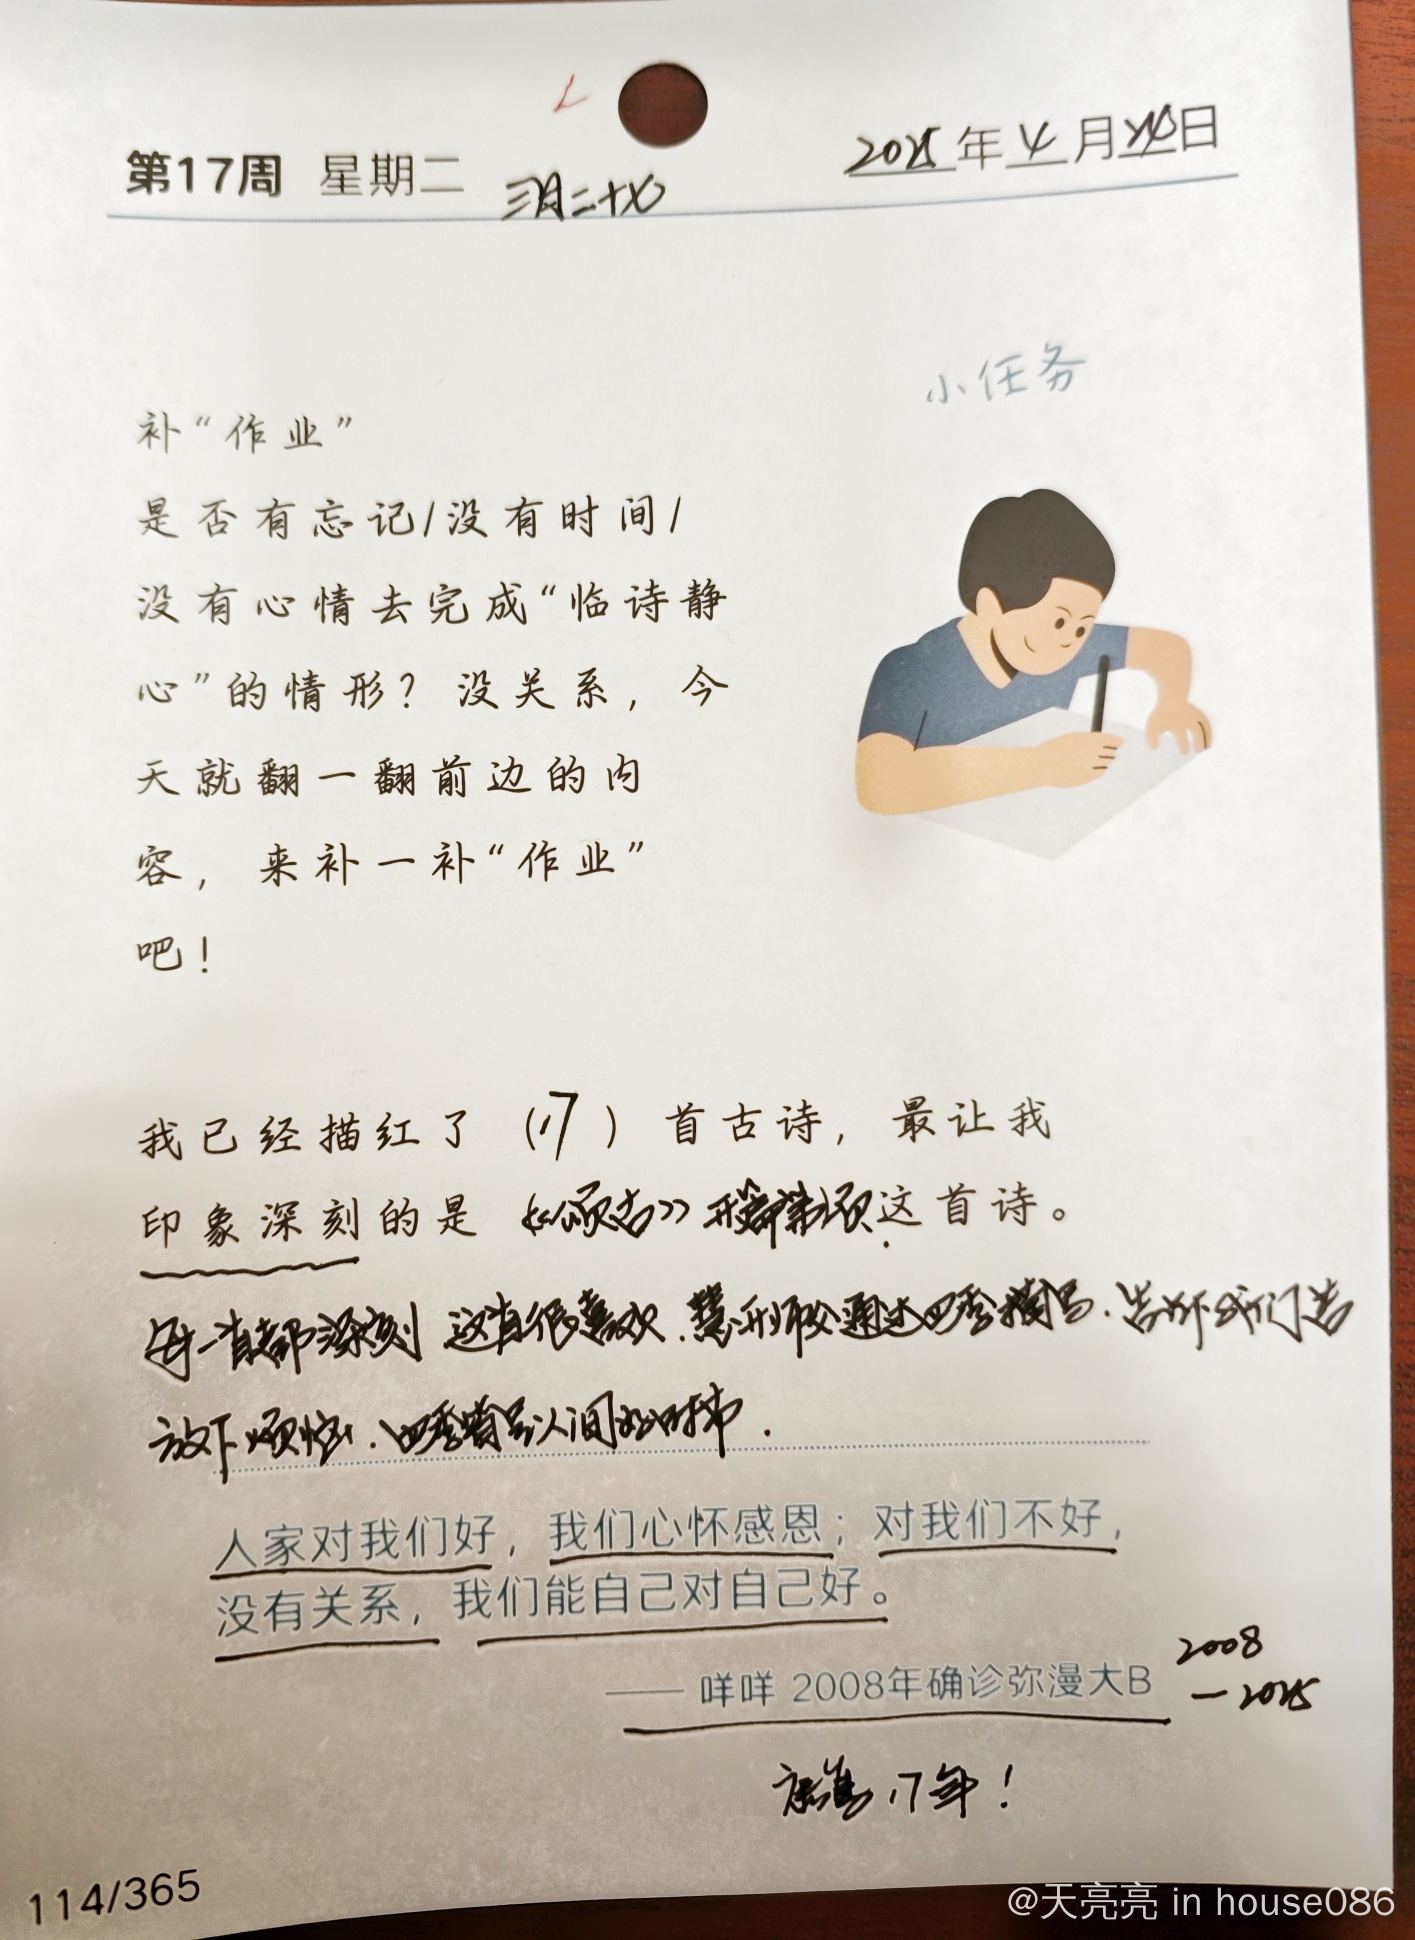 第17周 星期二 三月二十七
2025年4月日
小任务
补“作业”
是否有忘记/没有时间/
没有心情去完成“临诗静
心”的情形？没关系，今
天就翻一翻前边的内
容，来补一补“作业”
吧！
我已经描红了（17）首古诗，最让我
印象深刻的是《颂古》这首诗。
每一首都深刻 这首很喜欢.慧开师父通过四季描写.告诉我们
放下烦恼.四季皆是人间好时节.
人家对我们好，我们心怀感恩；对我们不好，
没有关系，我们能自己对自己好。
—— 咩咩 2008年确诊弥漫大B
2008
—2025
17年！
114/365
@天亮亮 in house086